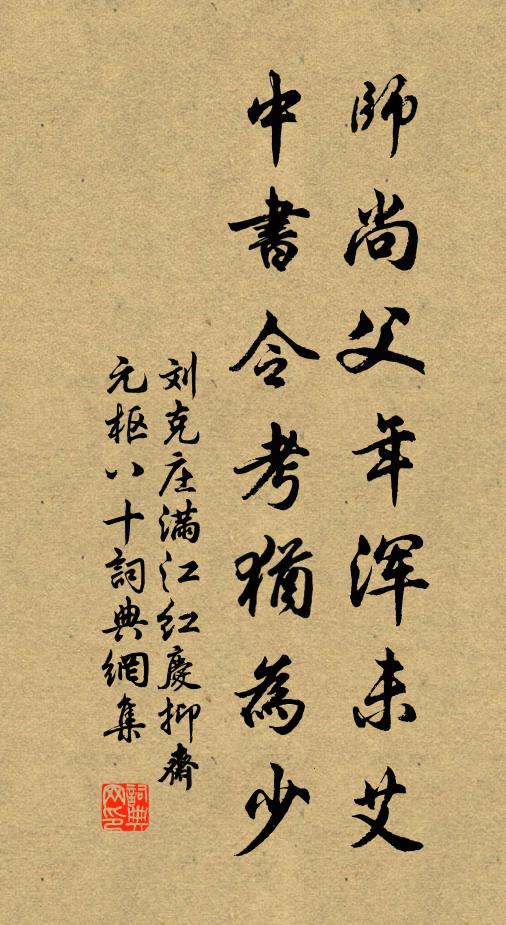 師尚父年浑未艾
中書令考猶為少
刘克庄满江红慶抑齋
元枢八十詞典網集
詞典網印